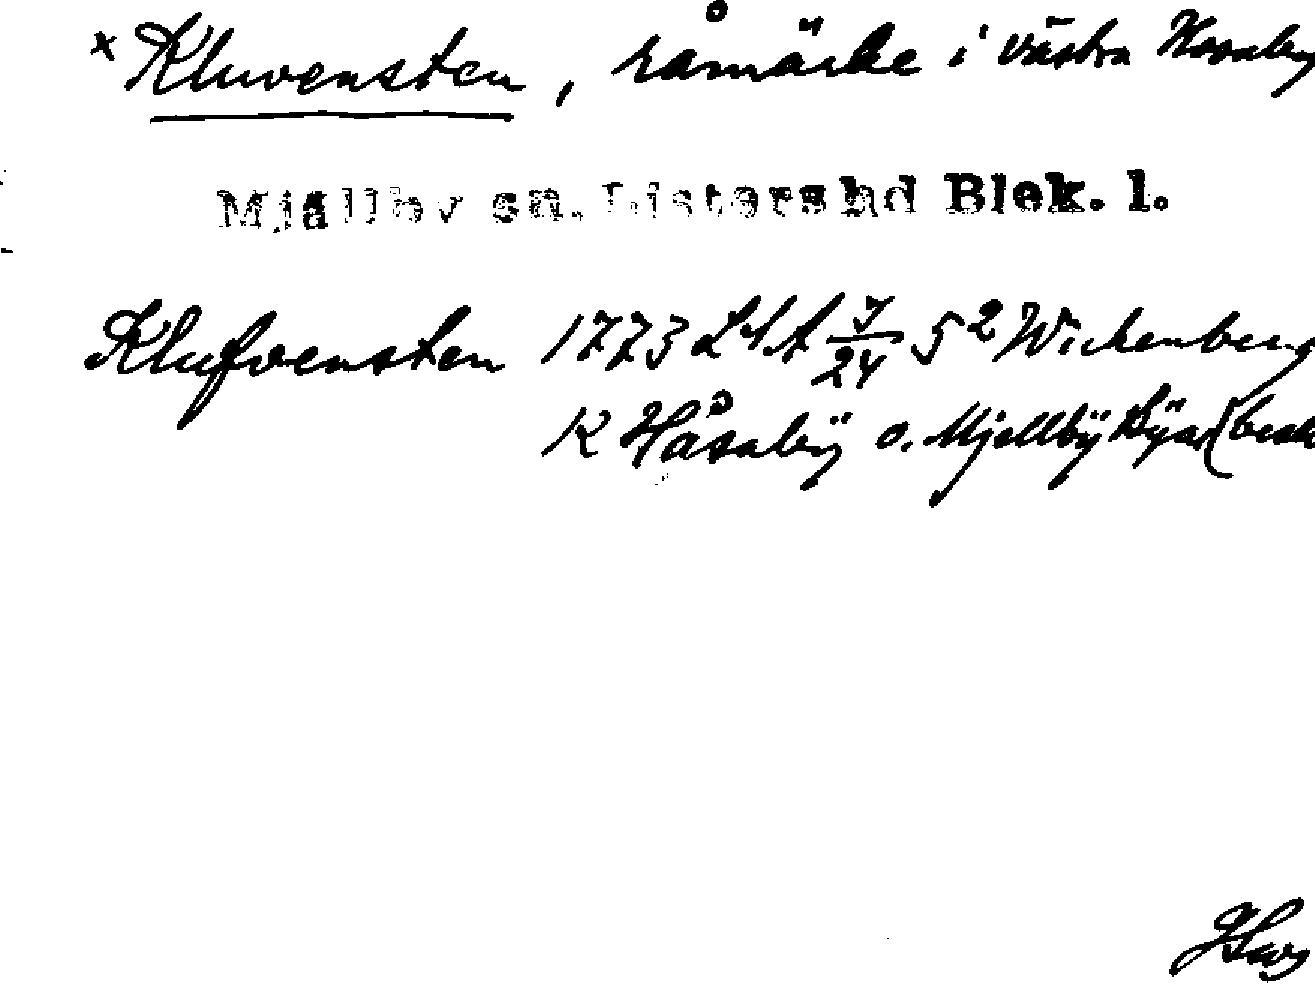 × Kluvensten, råmärke i västra Hosaby
Mjällby sn. Listers hd Blek. l.
Klufvensten 1773 LSA 7/24 5² Wickenberg
K Håsabÿ o. Mjellbÿ Bÿar (besk